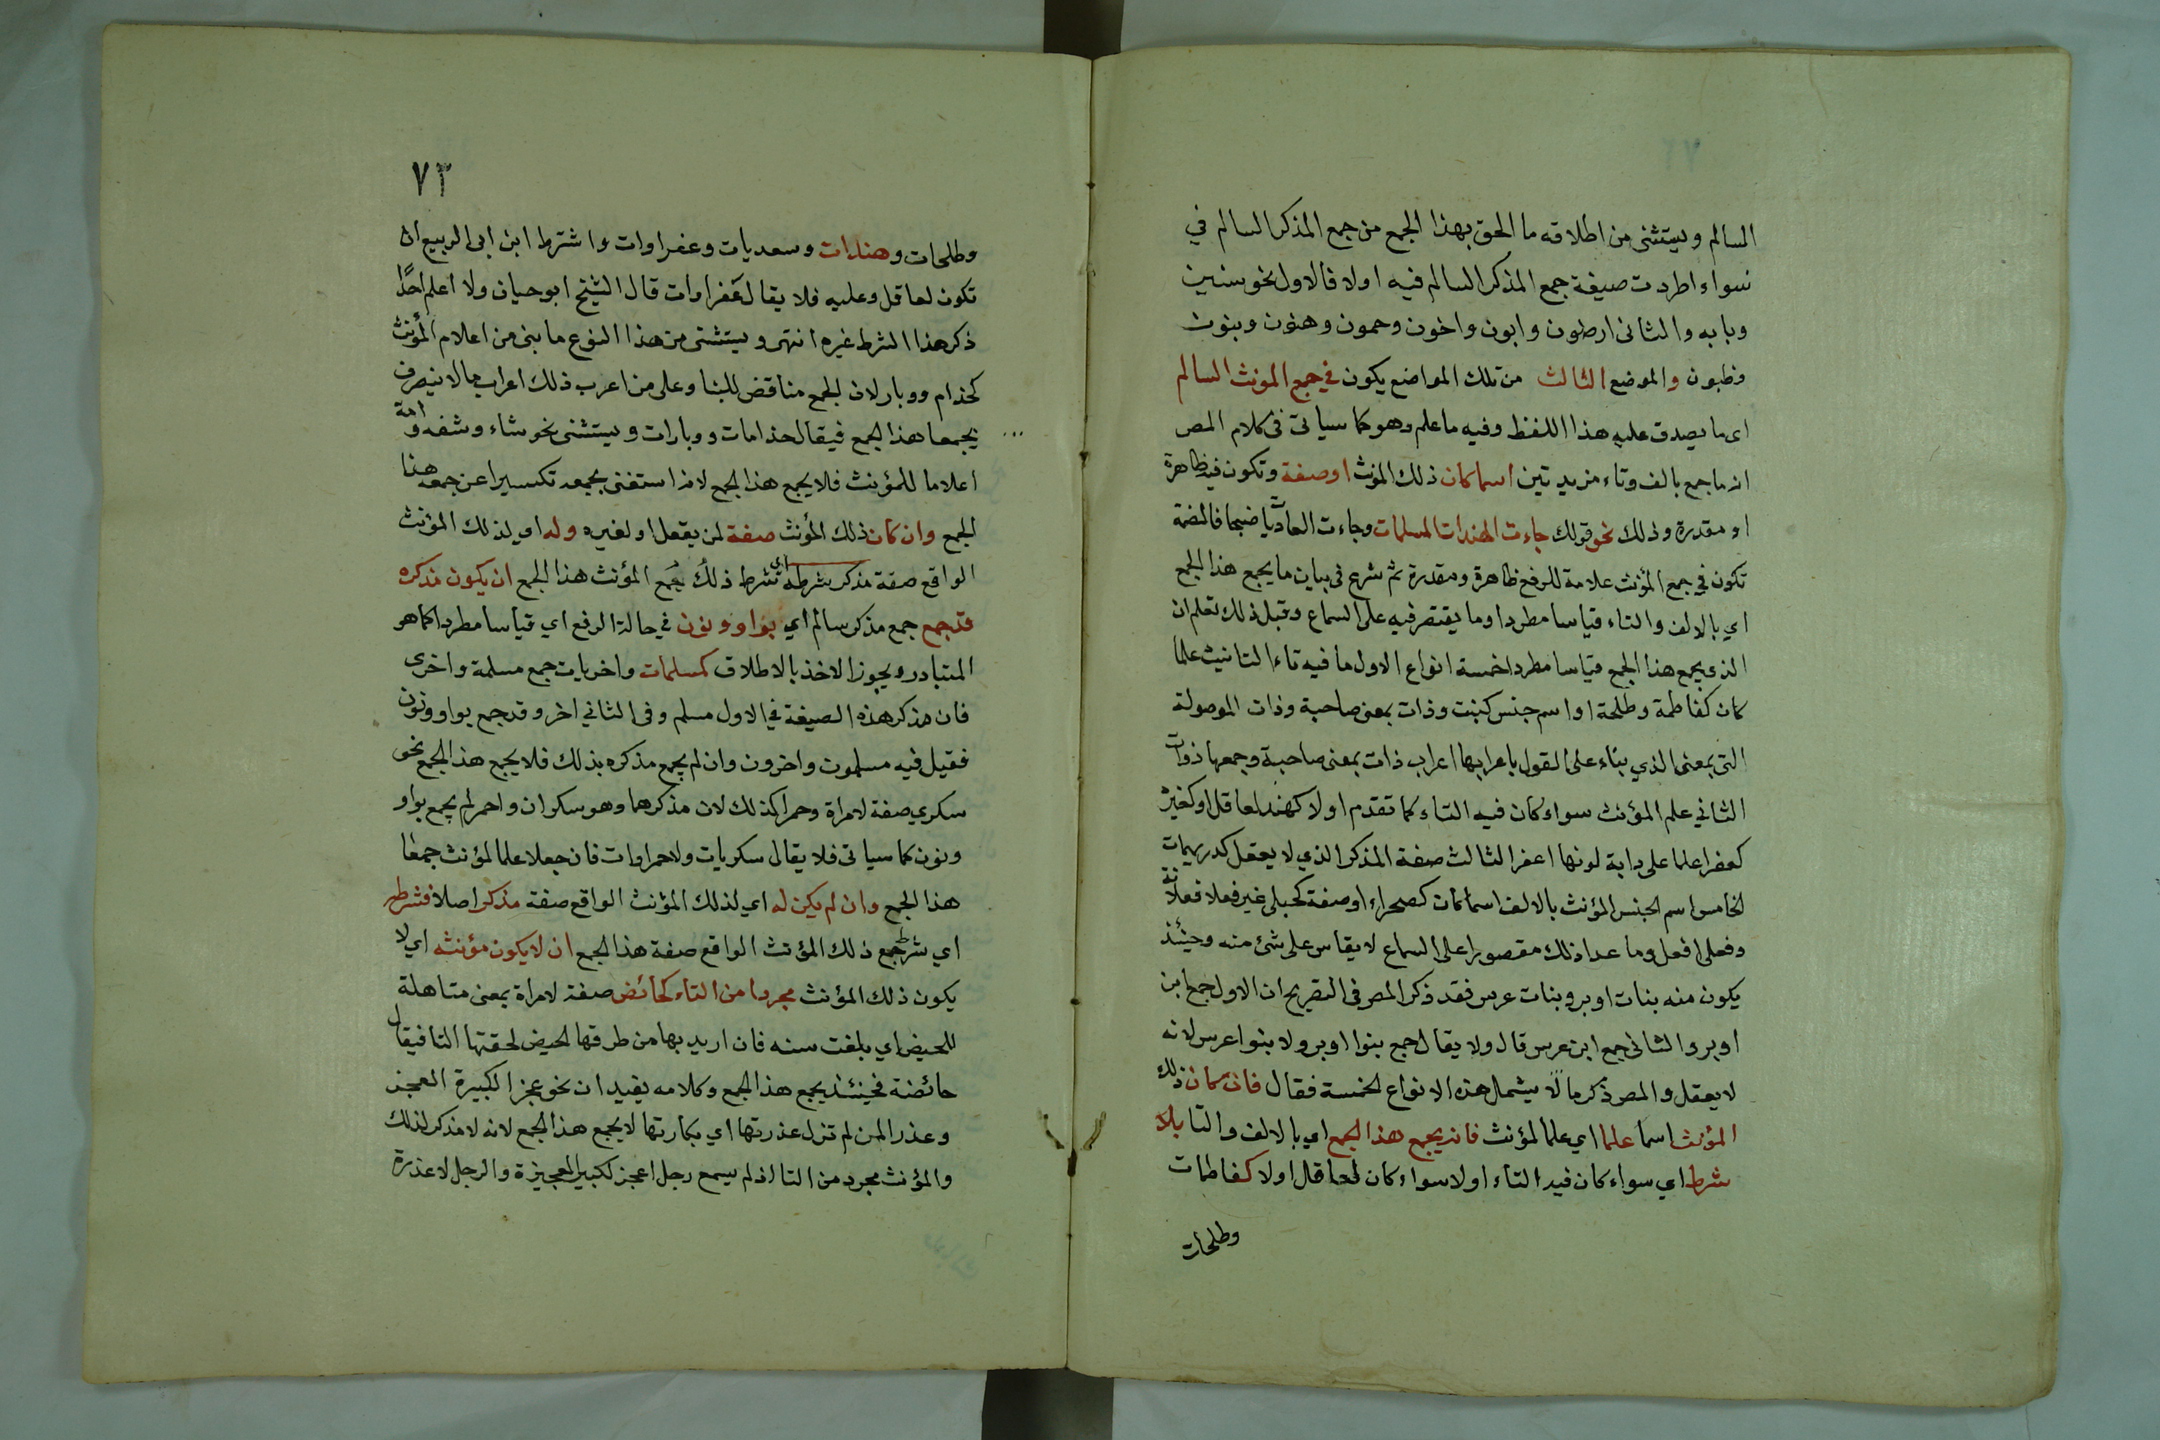 السالم ويستثنى من اطلاقه ما الحق بهذا الجمع من جمع المذكر السالم في
سواء اطردت صيغة جمع المذكر السالم فيه اولا فالاول نحو سنين
وبابه والثانى ارضون وابون واخون وحمون وهنون وبنون
وظبون والموضع الثالث من تلك المواضع يكون في جمع المونث السالم
اى ما يصدق عليه هذا اللفظ وفيه ما علم وهو كما سياتى فى كلام المص
انه ما جمع بالف وتاء مزيدتين اسما كان ذلك المونث او صفة وتكون فيه ظاهرة
او مقدرة وذلك نحو قولك جاءت الهندات المسلمات وجاءت العاديات ضبحا فالضمة
تكون في جمع المؤنث علامة للرفع ظاهرة ومقدرة ثم شرع فى بيان ما يجمع هذا الجمع
اي بالالف والتاء قياسا مطردا وما يقتصر فيه على السماع وقبل ذلك تعلم ان
الذي يجمع هذا الجمع قياسا مطردا خمسة انواع الاول ما فيه تاء التانيث علما
كان كفاطمة وطلحة او اسم جنس كبنت وذات بمعنى صاحبة وذات الموصولة
التى بمعنى الذي بناء على القول باعرابها اعراب ذات بمعنى صاحبة وجمعها ذوات
الثاني علم المؤنث سواء كان فيه التاء كما تقدم اولا كهند لعاقل او كغيره
كعفرا علما على دابة لونها اعفر الثالث صفة المذكر الذي لا يعقل كدريهمات
الخامس اسم الجنس المؤنث بالالف اسما كصحراء او صفة كحبلى غير فعلا فعلان
وفعلى افعل وما عدا ذلك مقصورا على السماع لا يقاس على شئ منه وحينئذ
يكون منه بنات اوبر وبنات عرس فقد ذكر المص فى التصريح ان الاول جمع ابن
اوبر والثانى جمع ابن عرس قال ولا يقال جمع بنوا اوبر ولا بنوا عرس لانه
لا يعقل والمص ذكر مالا يشمل هذه الانواع الخمسة فقال فان كان ذلك
المؤنث اسما علما اي علما لمؤنث فانه يجمع هذا الجمع اي بالالف والتا بلا
شرط اي سواء كان فيه التاء اولا سواء كان لعاقل اولا كفاطمات
وطلحات
٧٣
وطلحات وهندات وسعديات وعفراوات واشترط ابن ابى الربيع ان
تكون لعاقل وعليه فلا يقال عفراوات قال الشيخ ابوحيان ولا اعلم احدًا
ذكر هذا الشرط غيره انتهى ويستثنى من هذا النوع ما بنى من اعلام المؤنث
كحذام ووبار لان الجمع مناقض للبنا وعلى من اعرب ذلك اعراب ما لا ينصرف
يجمعها هذا الجمع فيقال حذامات ووبارات ويستثنى نحو شاء وشفه وامة
اعلاما للمؤنث فلا يجمع هذا الجمع لانه استغنى بجمعه تكسيرا عن جمعه هذا
الجمع وان كان ذلك المؤنث صفة لمن يعقل او لغيره وله اي لذلك المؤنث
الواقع صفة مذكر شرطه اي شرط ذلك جمع المؤنث هذا الجمع ان يكون مذكره
قد جمع جمع مذكر سالم اي بواو ونون في حالة الرفع اي قياسا مطردا كما هو
المتبادر ويجوز الاخذ بالاطلاق كمسلمات واخريات جمع مسلمة واخرى
فان مذكر هذه الصيغة في الاول مسلم وفى الثاني اخر وقد جمع بواو ونون
فقيل فيه مسلمون واخرون وان لم يجمع مذكره بذلك فلا يجمع هذا الجمع نحو
سكري صفة لامراة وحمرا كذلك لان مذكرهما وهو سكران واحمر لم يجمع بواو
ونون كما سياتى فلا يقال سكريات ولا حمراوات فان جعلا علما لمؤنث جمعا
هذا الجمع وان لم يكن له اي لذلك المؤنث الواقع صفة مذكر اصلا فشرطه
اي شرط جمع ذلك المؤنث الواقع صفة هذا الجمع ان لا يكون مؤنثه اي لا
يكون ذلك المؤنث مجردا من التاء كحائض صفة لامراة بمعنى متاهلة
للحيض اي بلغت سنه فان اريد بها من طرقها الحيض لحقتها التا فيقال
حائضة فحينئذ يجمع هذا الجمع وكلامه يفيد ان نحو عجز الكبيرة العجز
وعذرا لمن لم تزل عذرتها اي بكارتها لا يجمع هذا الجمع لانه لا مذكر لذلك
والمؤنث مجرد من التا اذ لم يسمع رجل اعجز لكبير العجيزة والرجل لا عذرة